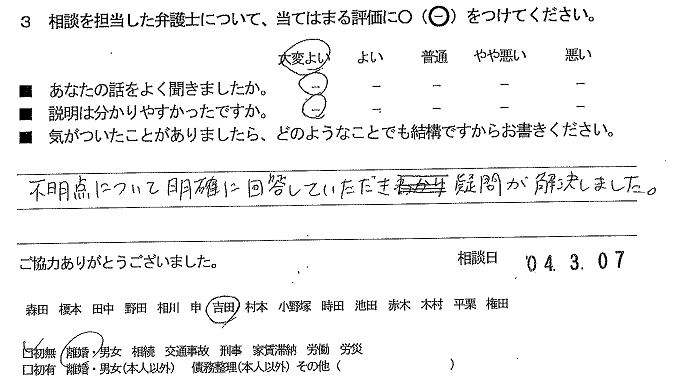 3 相談を担当した弁護士について、当てはまる評価に○(⊖)をつけてください。
大変よい よい 普通 やや悪い 悪い
■ あなたの話をよく聞きましたか。 － － － － －
■ 説明は分かりやすかったですか。 － － － － －
■ 気がついたことがありましたら、どのようなことでも結構ですからお書きください。
不明点について明確に回答していただき疑問が解決しました。
ご協力ありがとうございました。 相談日 '04.3.07
森田 榎本 田中 野田 相川 申 吉田 村本 小野塚 時田 池田 赤木 木村 平栗 権田
□初無 離婚・男女 相続 交通事故 刑事 家賃滞納 労働 労災
□初有 離婚・男女(本人以外) 債務整理(本人以外) その他 ( )